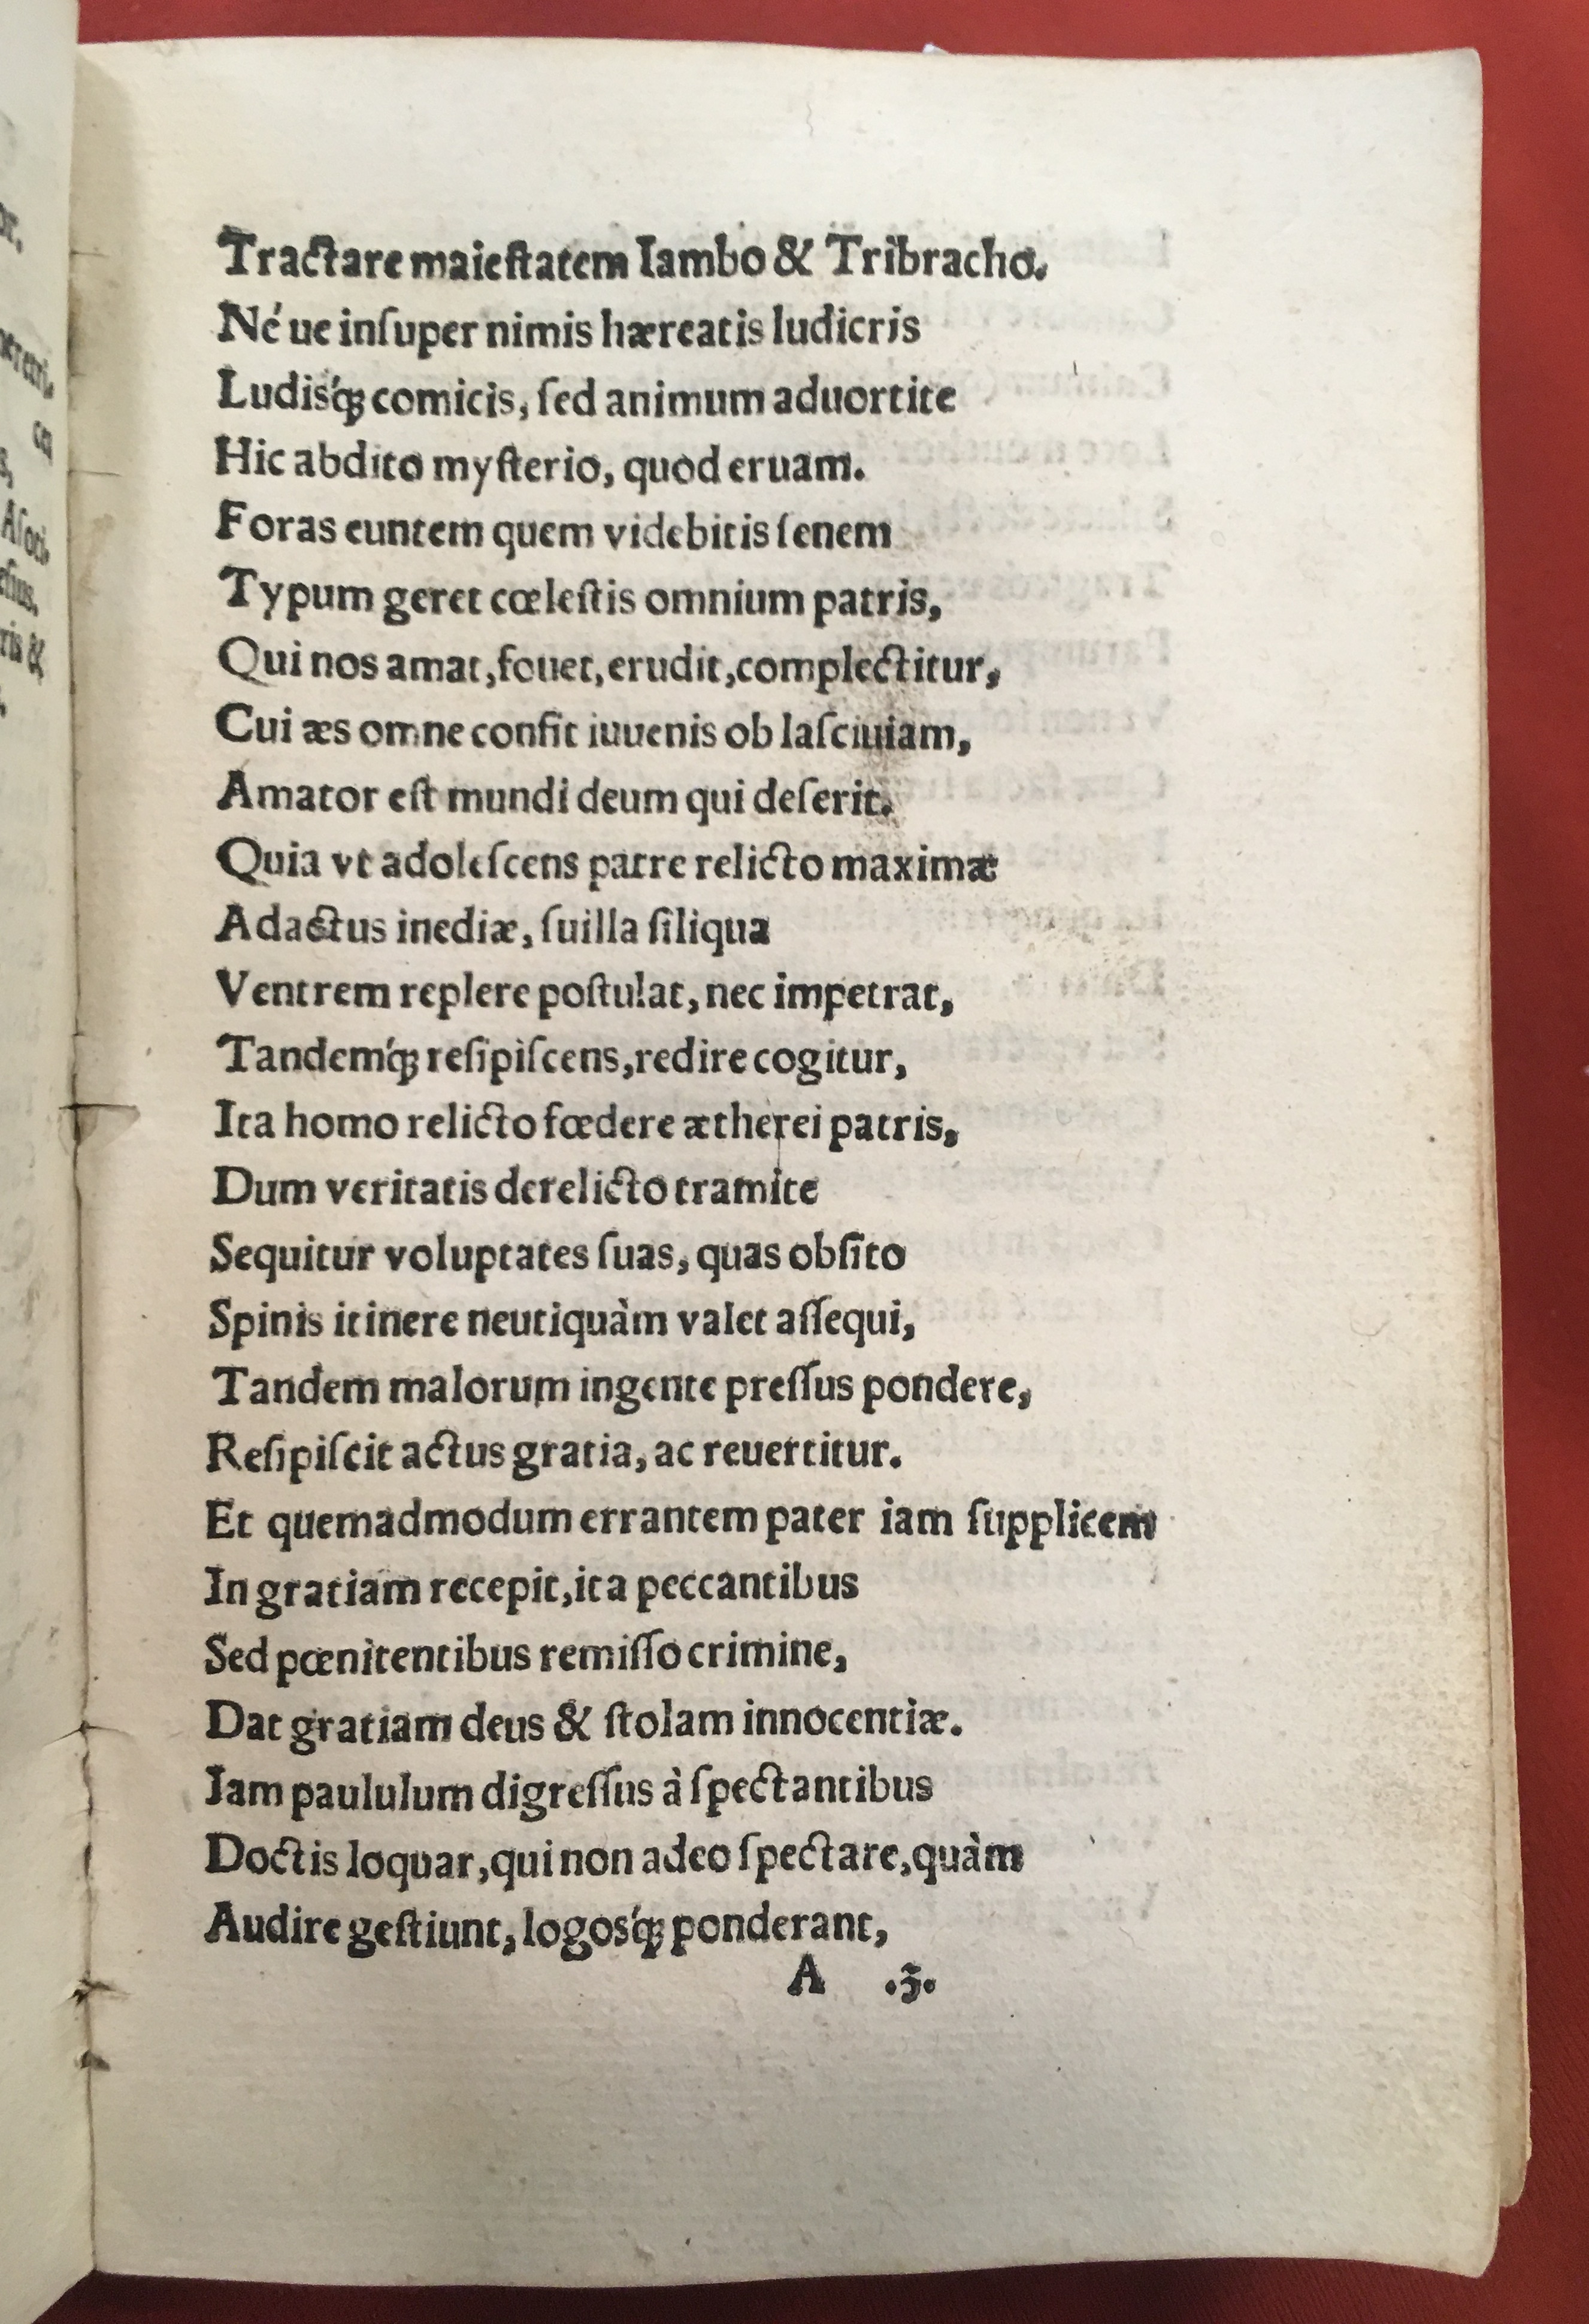 Tractare maieſtatem Iambo & Tribracho.
Né ue inſuper nimis hæreatis ludicris
Ludisq́ꝫ comicis, ſed animum aduortite
Hic abdito myſterio, quod eruam.
Foras euntem quem videbitis ſenem
Typum geret cœleſtis omnium patris,
Qui nos amat, fouet, erudit, complectitur,
Cui æs omne confit iuuenis ob laſciuiam,
Amator eſt mundi deum qui deſerit.
Quia vt adoleſcens patre relicto maximæ
Adactus inediæ, ſuilla ſiliqua
Ventrem replere poſtulat, nec impetrat,
Tandemq́ꝫ reſipiſcens, redire cogitur,
Ita homo relicto fœdere ætherei patris,
Dum veritatis derelicto tramite
Sequitur voluptates ſuas, quas obſito
Spinis itinere neutiquàm valet aſſequi,
Tandem malorum ingente preſſus pondere,
Reſipiſcit actus gratia, ac reuertitur.
Et quemadmodum errantem pater iam ſupplicem
In gratiam recepit, ita peccantibus
Sed pœnitentibus remiſſo crimine,
Dat gratiam deus & ſtolam innocentiæ.
Iam paululum digreſſus à ſpectantibus
Doctis loquar, qui non adeo ſpectare, quàm
Audire geſtiunt, logosq́ꝫ ponderant,
A .3.